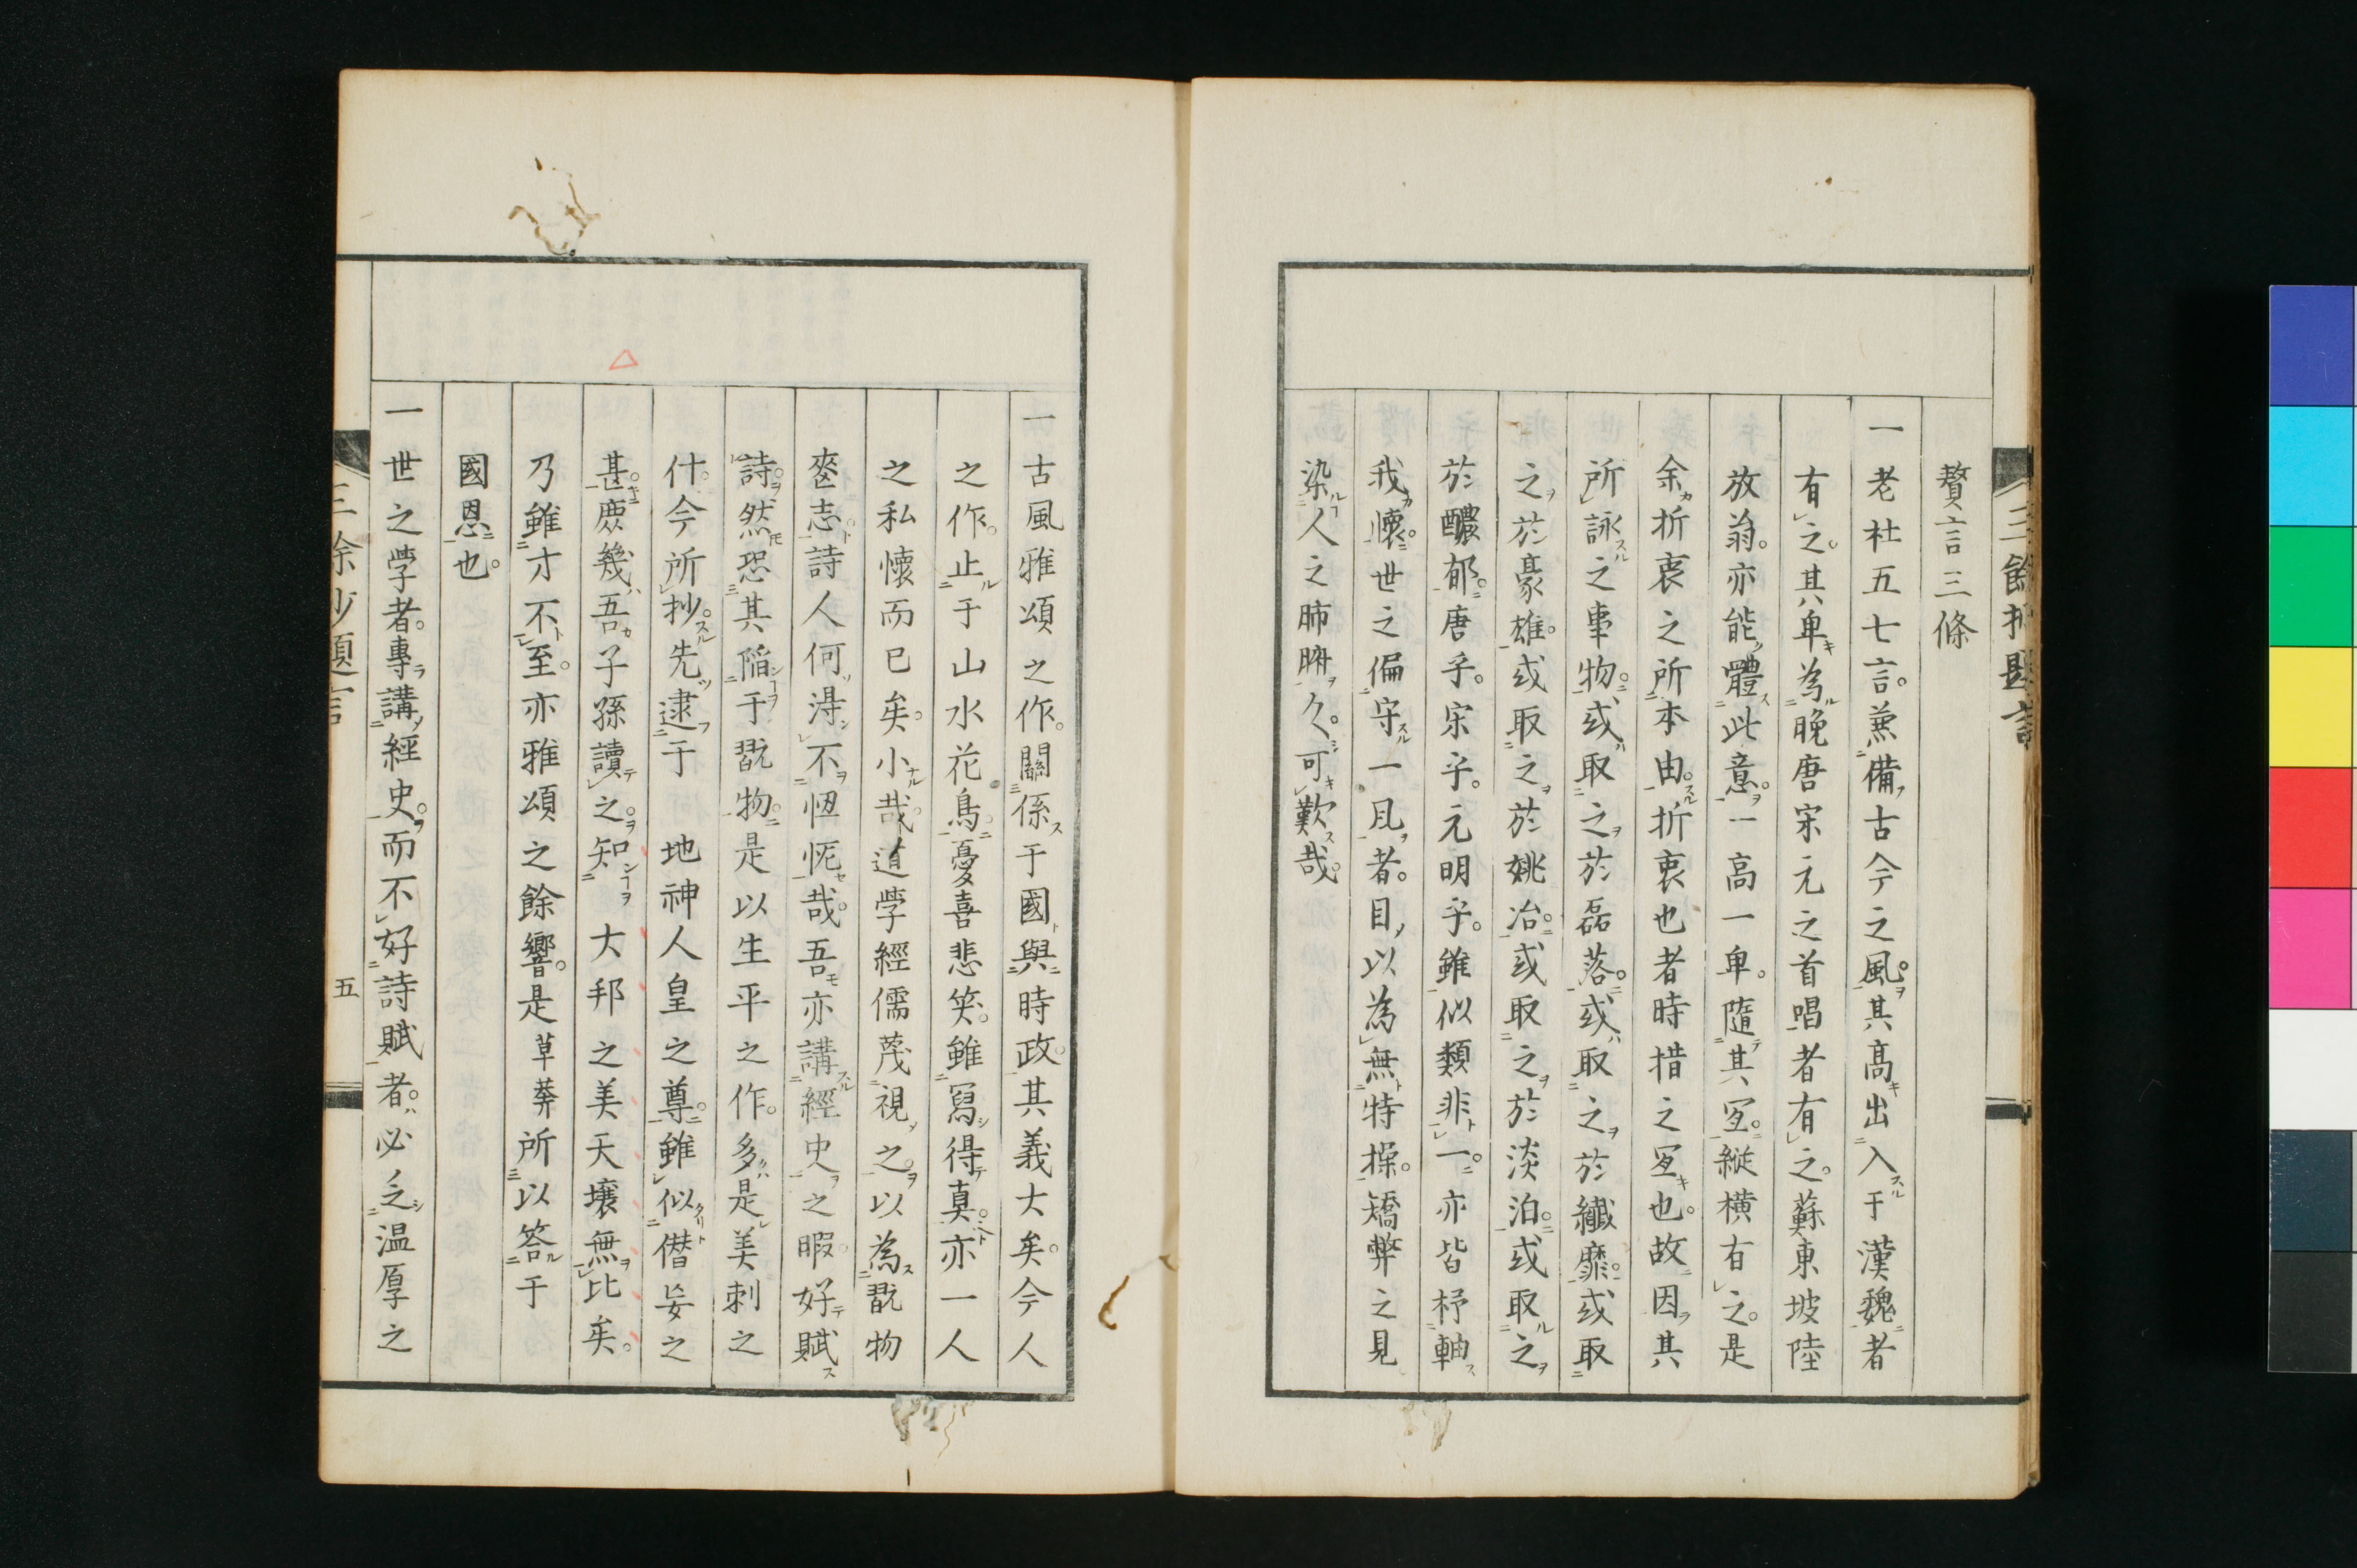 贅言三條
一老杜五七言。兼備古今之風。其高出入于漢魏者
有之。其卑為晚唐宋元之首唱者有之。蘇東坡陸
放翁。亦能體此意。一高一卑。隨其宜。縱橫有之。是
余折衷之所本由。折衷也者時措之宜也。故因其
所詠之事物。或取之於磊落。或取之於纖靡。或取
之於豪雄。或取之於姚冶。或取之於淡泊。或取之
於醲郁。唐乎。宋乎。元明乎。雖似類非一。亦皆杼軸
我懷。世之偏守一風者。目以為無特操。矯弊之見
染人之肺腑久。可歎哉。
一古風雅頌之作。關係于國與時政。其義大矣。今人
之作。止于山水花鳥。憂喜悲笑。雖寫得真。亦一人
之私懷而已矣。小哉。道學經儒蔑視之。以為翫物
喪志。詩人何得不忸怩哉。吾亦講經史之暇好賦
詩。然恐其陷于翫物。是以生平之作。多是美刺之
什。今所抄。先逮于 地神人皇之尊。雖似僭妄之
甚。庶幾吾子孫讀之。知 大邦之美天壤無比矣。
乃雖才不至。亦雅頌之餘響。是草莽所以答于
國恩也。
一世之學者。專講經史。而不好詩賦者。必乏溫厚之
五